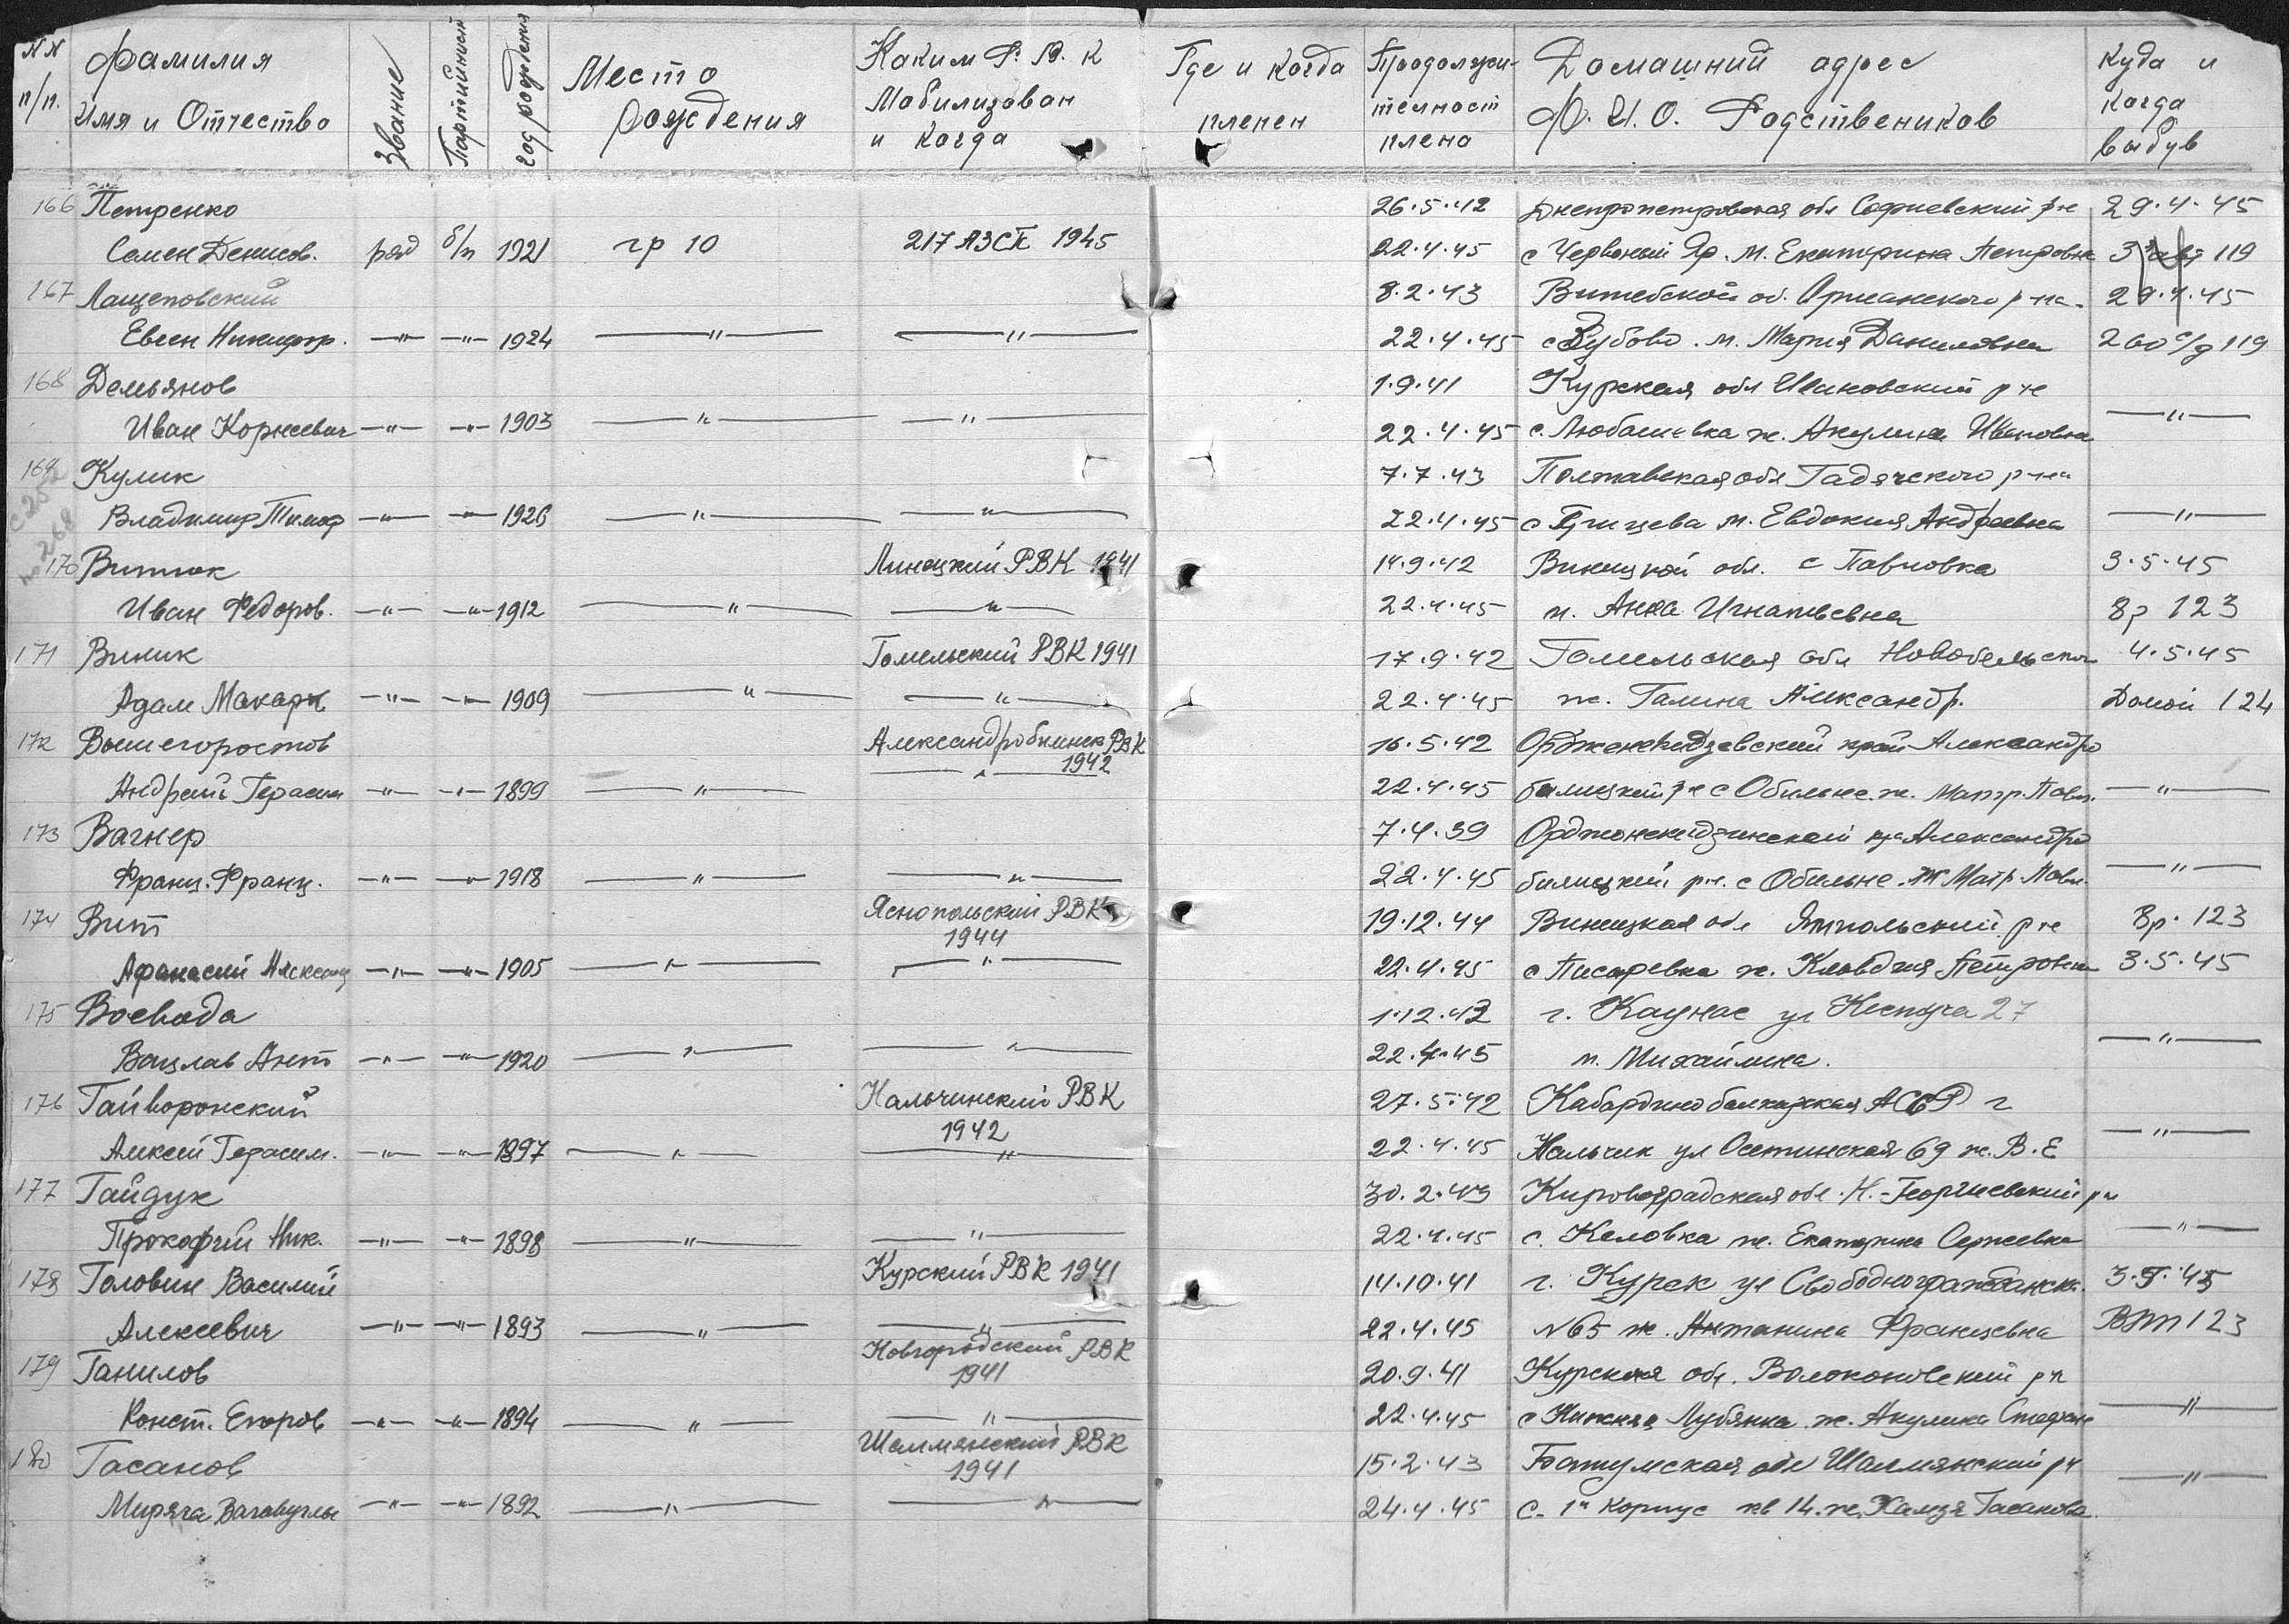 NN п/п. Фамилия Имя и Отчество Звание Партийност год рождения Место рождения Каким Р.В.К Мобилизован и когда Где и когда пленен Продолжи-телност плена Домашний адрес Ф.И.О. Родствеников Куда и когда выбув
166 Петренко 26.5.42 Днепропетровская обл Софиевский р-н 29.4.45
Семен Денисов. ряд б/п 1921 гр 10 217 АЗСП 1945 22.4.45 с Червоный Яр. м. Екатирина Петровна 119
167 Лащеповский 8.2.43 Витебской об. Оршанского р-на. 29.4.45
Евген Никифор. —"— —"— 1924 —"— —"— 22.4.45 с Зубово. м. Мария Даниловна 200 с/д 119
168 Демьянов 1.9.41 Курская обл Ивановский р-н
Иван Корнеевич —"— —"— 1903 —"— —"— 22.4.45 с. Любашевка ж. Акулина Ивановна —"—
169 Кулик 7.7.43 Полтавская обл Гадячского р-на
Владимир Тимоф —"— —"— 1926 —"— —"— 22.4.45 с м. Евдокия Андреевна —"—
170 Витюк РВК 1941 14.9.42 Виницкой обл. с Павловка 3.5.45
Иван Федоров. —"— —"— 1912 —"— —"— 22.4.45 Анна Игнатьевна 8р 123
171 Вилик Гомельский РВК 1941 17.9.42 Гомельская обл Новобельской 4.5.45
Адам Макарч —"— —"— 1909 —"— —"— 22.4.45 ж. Галина Александр. Домой 124
172 Вышегоростов РВК 1942 16.5.42 край Александро
Андрей Герасим —"— —"— 1899 —"— —"— 22.4.45 р-н с Обильне. ж. Матр. Павл. —"—
173 Вагнер 7.4.39 Александро
Франц. Франц. —"— —"— 1918 —"— —"— 22.4.45 р-н. с Обильне. Ж Матр. Павл. —"—
174 Вит Яснопольский РВК 1944 19.12.44 Виницкая обл Ямпольский р-н Вр. 123
Афанасий Александ —"— —"— 1905 —"— —"— 22.4.45 с Писаревка ж. Клавдия Петровна 3.5.45
175 Воевода 1.12.43 г. Каунас ул Кестуча 27
Вацлав Ант —"— —"— 1920 —"— —"— 22.4.45 Михайлина. —"—
176 Гайворонский Нальчинский РВК 1942 27.5.42 Кабардино балкарская АССР г
Алексей Герасим. —"— —"— 1897 —"— —"— 22.4.45 Нальчик ул Осетинская 69 ж. В.Е —"—
177 Гайдук 30.2.43 Кировоградская обл. Н.-Георгиевский рн
Прокофий Ник. —"— —"— 1898 —"— —"— 22.4.45 с. Каловка ж. Екатерина Сергеевна —"—
178 Головин Василий Курский РВК 1941 14.10.41 г. Курск ул Свободногражданск. 3.5.45
Алексеевич —"— —"— 1893 —"— —"— 22.4.45 №65 ж. Антанина Францевна 123
179 Ганилов Новгородский РВК 1941 20.9.41 Курская обл. Волоконовский рн
Конст. Егоров —"— —"— 1894 —"— —"— 22.4.45 с Нижняя Лубянка ж. Акулина Стефан —"—
180 Гасанов Шаумянский РВК 1941 15.2.43 Батумская обл Шаумянский рн
Миряга —"— —"— 1892 —"— —"— 24.4.45 с. 1й корпус кв 14. ж. Хамзя Гасанова. —"—